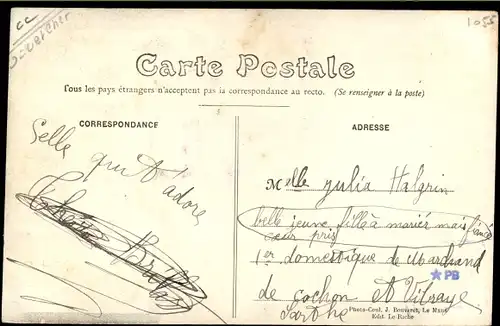 cc
1055
Carte Postale
Tous les pays étrangers n'acceptent pas la correspondance au recto. (Se renseigner à la poste)
CORRESPONDANCE
ADRESSE
Selle
qui t'adore
Melle Julia Halgrin
belle jeune fille à mariér mais fiancée
cœur pris
1er domestique de Marchand
★PB
de Cochon et Vibraye
Sarthe
Photo-Coul. J. Bouveret, Le Mans
Edit. Le Riche